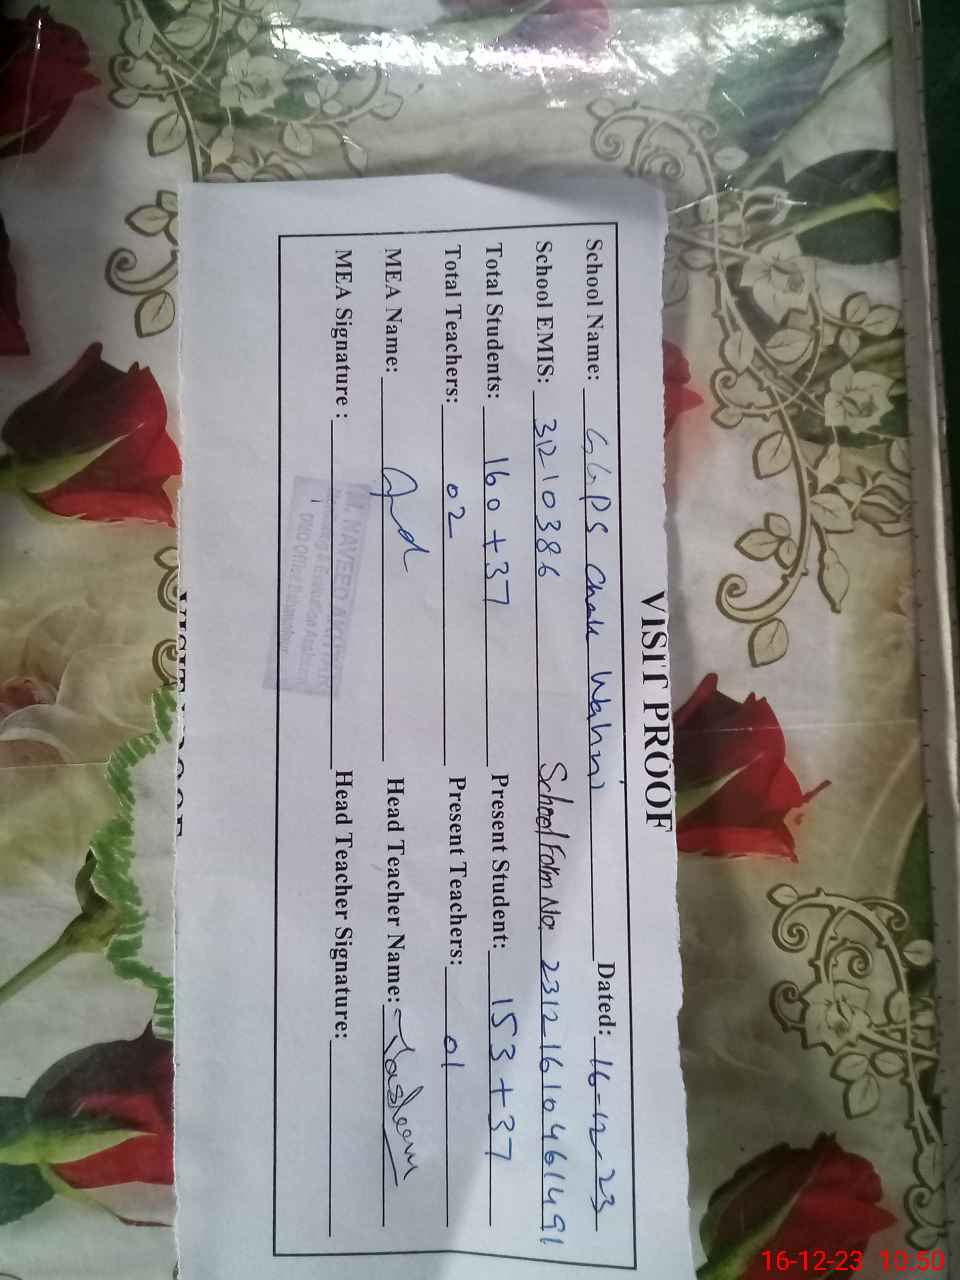 VISIT PROOF
School Name: G,G,PS Chak Wahni Dated: 16-12-23
School EMIS: 31210386 School Form No. 23121610461491
Total Students: 160 + 37 Present Student: 153 + 37
Total Teachers: 02 Present Teachers: 01
MEA Name: Head Teacher Name: Tasleem
MEA Signature : Head Teacher Signature:
M. NAVEED AKHTAR
Monitoring & Evaluation Assistant
DMO Office Bahawalpur
VISIT PROOF
16-12-23 10.50